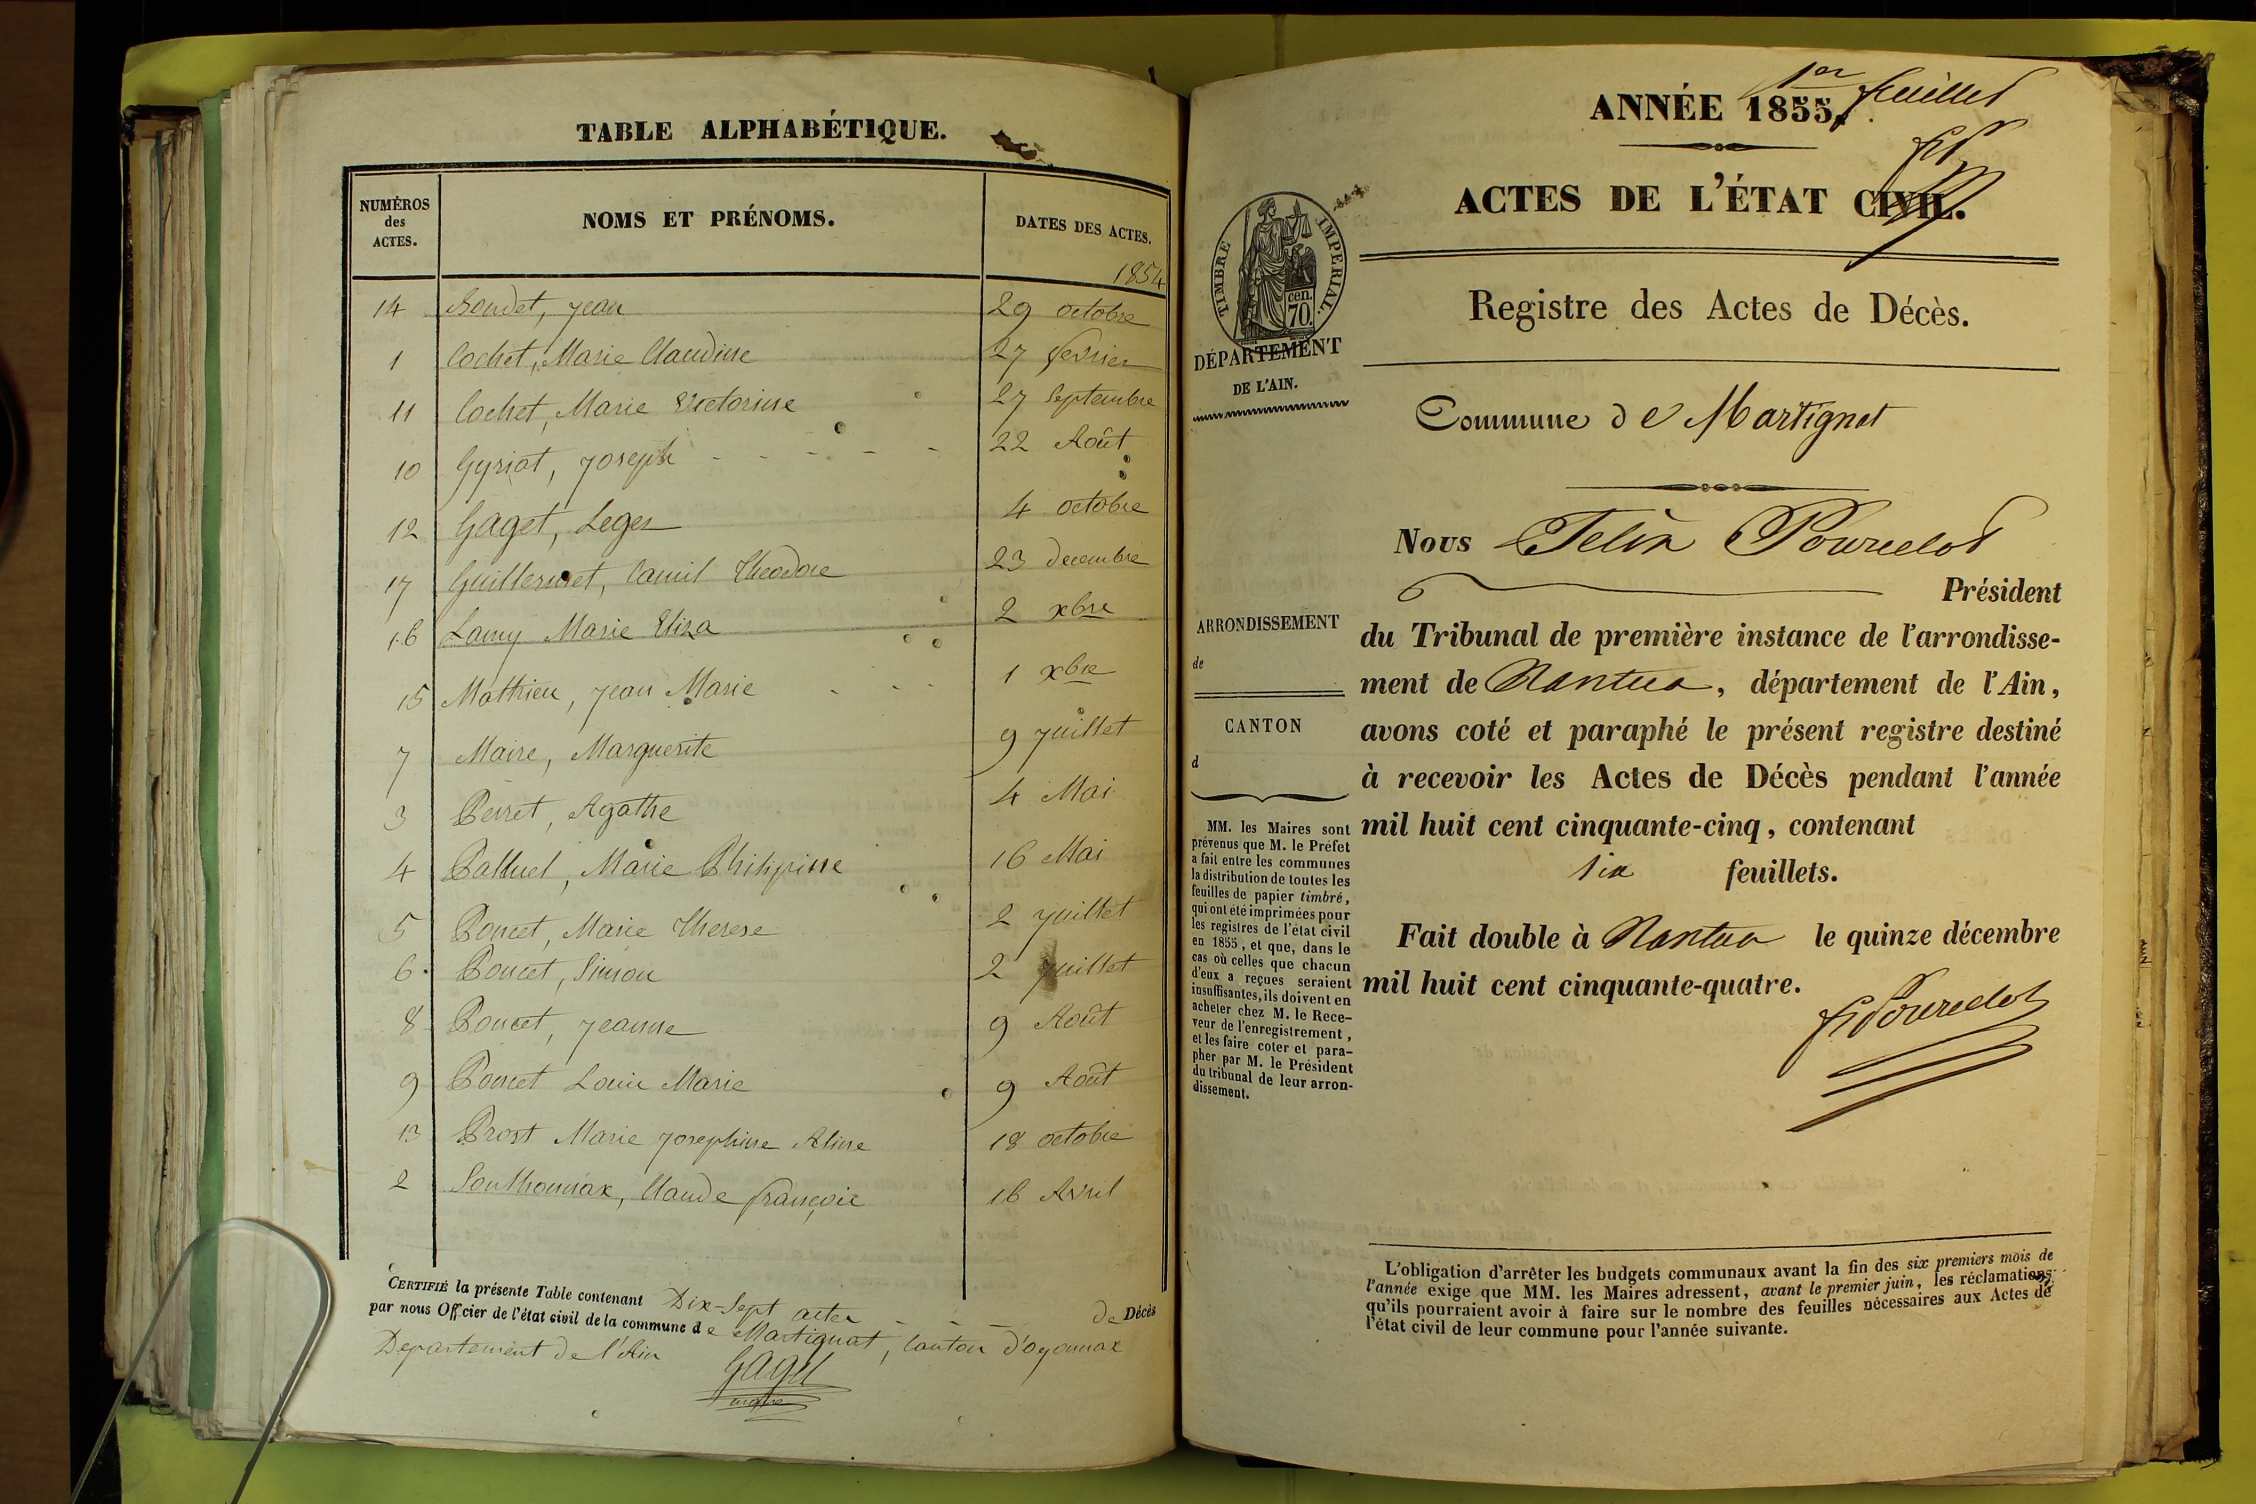 TABLE ALPHABÉTIQUE.
NUMÉROS des ACTES.
NOMS ET PRÉNOMS.
DATES DES ACTES.
1854
14 Bondet, Jean 29 octobre
1 Cochet, Marie Claudine 27 fevrier
11 Cochet, Marie Victorine 27 Septembre
10 Gyriat, Joseph 22 Août
12 Gaget, Leger 4 octobre
17 Guillermet, Camil Theodore 23 decembre
16 Lamy Marie Eliza 2 xbre
15 Mathieu, Jean Marie 1 xbre
7 Maire, Marguerite 9 Juillet
3 Perret, Agathe 4 Mai
4 Palluel, Marie Philippine 16 Mai
5 Poncet, Marie Therese 2 Juillet
6 Poncet, Simon 2 Juillet
8 Poncet, Jeanne 9 Août
9 Poncet Louis Marie 9 Août
13 Prost Marie Josephine Aline 18 octobre
2 Sonthonnax, Claude françois 16 Avril
CERTIFIÉ la présente Table contenant Dix-Sept actes de Décès
par nous Officier de l'état civil de la commune de Martignat, Canton d'oyonnax
Departement de l'Ain
Gaget
maire
1er feuillet
ANNÉE 1855.
ACTES DE L'ÉTAT CIVIL.
TIMBRE IMPERIAL.
cen.
70
Registre des Actes de Décès.
DÉPARTEMENT
DE L'AIN.
Commune de Martignat
Nous Felix Pourcelot
Président
ARRONDISSEMENT
de
CANTON
d
du Tribunal de première instance de l'arrondisse-
ment de Nantua, département de l'Ain,
avons coté et paraphé le présent registre destiné
à recevoir les Actes de Décès pendant l'année
mil huit cent cinquante-cinq, contenant
six feuillets.
Fait double à Nantua le quinze décembre
mil huit cent cinquante-quatre.
F Pourcelot
MM. les Maires sont
prévenus que M. le Préfet
a fait entre les communes
la distribution de toutes les
feuilles de papier timbré,
qui ont été imprimées pour
les registres de l'état civil
en 1855, et que, dans le
cas où celles que chacun
d'eux a reçues seraient
insuffisantes, ils doivent en
acheter chez M. le Rece-
veur de l'enregistrement,
et les faire coter et para-
pher par M. le Président
du tribunal de leur arron-
dissement.
L'obligation d'arrêter les budgets communaux avant la fin des six premiers mois de
l'année exige que MM. les Maires adressent, avant le premier juin, les réclamations
qu'ils pourraient avoir à faire sur le nombre des feuilles nécessaires aux Actes de
l'état civil de leur commune pour l'année suivante.